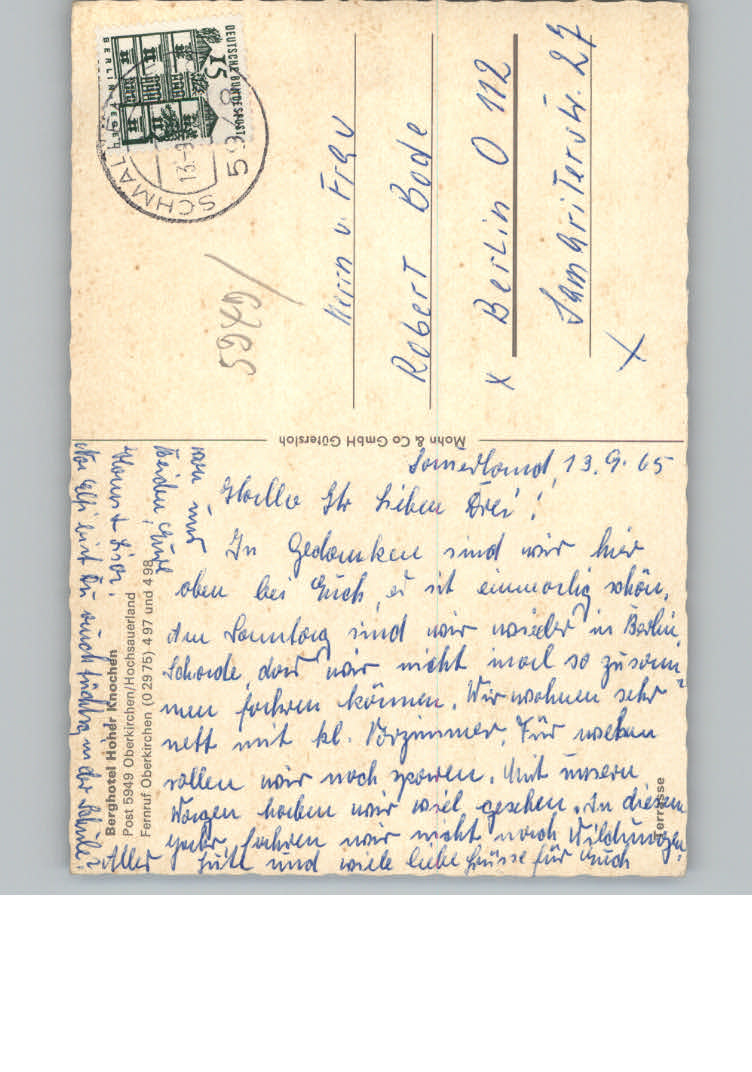 Sauerland, 13.9.65
Hallo Ihr Lieben Drei!
In Gedanken sind wir hier
oben bei Euch, es ist einmalig schön.
Am Sonntag sind wir wieder in Berlin.
Schade, das wir nicht mal so zusam-
men fahren können. Wir wohnen sehr
nett mit kl. Vorzimmer. Für
sollen wir noch sparen. Mit unsern
Wagen haben wir viel gesehen. In diesem
Jahr fahren wir nicht nach Wildungen.
Alles Gute und viele liebe Grüsse für Euch
von uns
beiden, Eure
Horst +
Na Elfi bist Du auch tüchtig in der Schule?
Berghotel Hoher Knochen
Post 5949 Oberkirchen/Hochsauerland
Fernruf Oberkirchen (0 29 75) 4 97 und 4 98
Terrasse
Mohn & Co GmbH Gütersloh
DEUTSCHE BUNDESPOST
15
BERLIN TEGEL
SCHMAL
13.-9
Herrn u. Frau
Robert Bode
x Berlin O 112
Samariterstr. 27
x